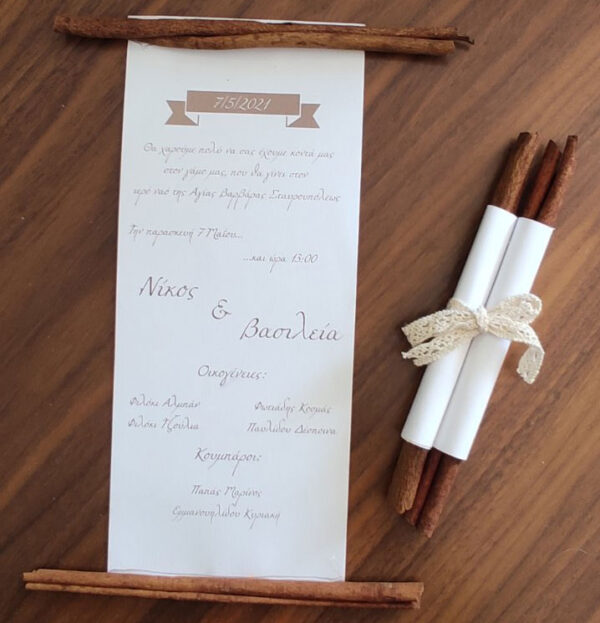 7/5/2021
Θα χαρούμε πολύ να σας έχουμε κοντά μας
στον γάμο μας, που θα γίνει στον
ιερό ναό της Αγίας Βαρβάρας Σταυρουπόλεως
Την παρασκευή 7 Μαΐου...
...και ώρα 13:00
Νίκος
&
Βασιλεία
Οικογένειες:
Φιλόκι Αλμπάν Φωτιάδης Κοσμάς
Φιλόκι Τζούλια Παυλίδου Δέσποινα
Κουμπάροι:
Παπάς Μαρίνος
Εμμανουηλίδου Κυριακή